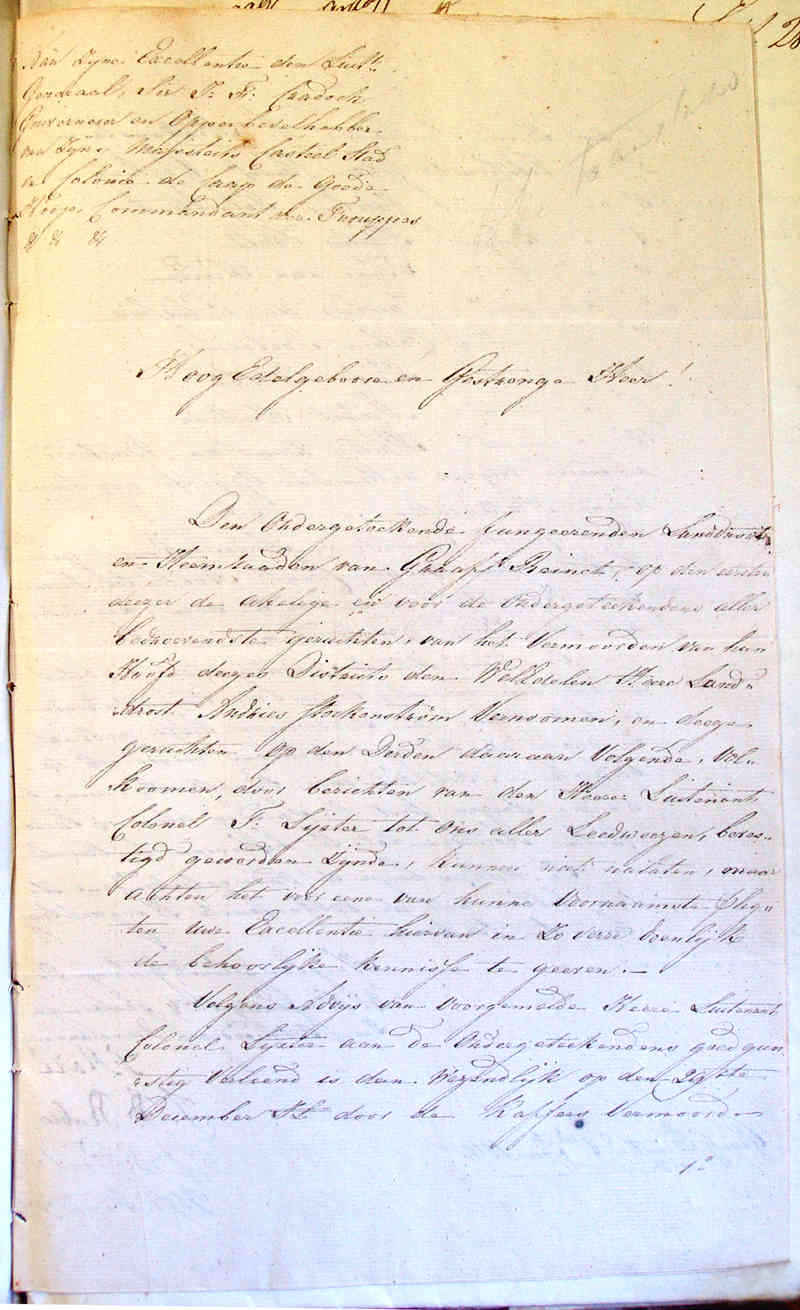 Aan Zyne Excellentie den Luitt
Generaal, Sir J. F. Cradock
Gouverneur en Opperbevelhebber
van Zyne Majesteits Casteel Stad
en Colonie de Caap de Goede
Hoop, Commandant der Trouppes
&c &c &c
Hoog Edelgebooren en Gestrenge Heer!
Den Ondergeteekende fungeerenden Landdrost
en Heemraaden van Graaff Reinett, op den eersten
deezer de akelige en voor de ondergeteekendens aller
bedroevendste geruchten, van het Vermoorden van hun
Hoofd deezes Districts den WelEdelen Heere Land„
drost Andries Stockenström Vernoomen, en deeze
geruchten op den Derden daaraan Volgende, Vol„
koomen, door berichten van den Heere Luitenant
Colonel F: Lyster tot ons aller Leedweezen, beves„
tigd geworden Zynde, kunnen niet nalaten, maar
achten het voor eene van hunne Voornaamste Plig„
ten Uwe Excellentie hiervan in Zo verre doenlyk
de behoorlyke kennisse te geeven. —
Volgens Advys van Voorgemelde Heere Luitenant
Colonel Lyster aan de Ondergeteekendens goedgun
stig Verleend is dan Wezendlyk op den 29ste
December Jl door de Kaffers Vermoord
1º